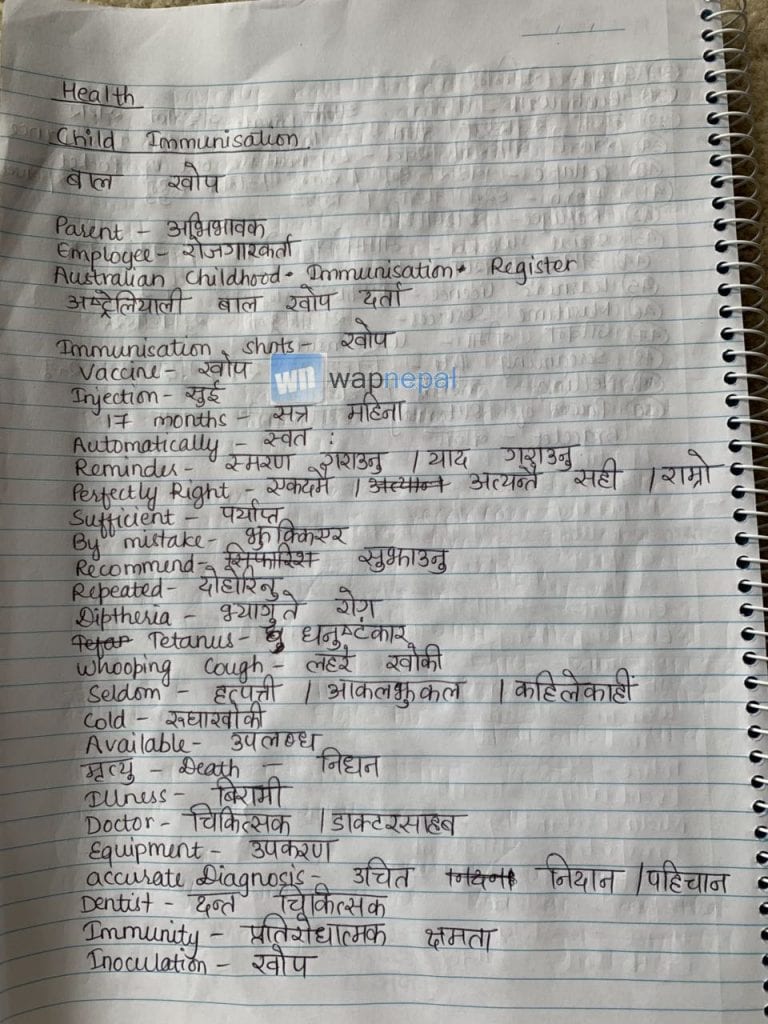 Health
Child Immunisation
बाल खोप
Parent - अभिभावक
Employee - रोजगारकर्ता
Australian Childhood Immunisation Register
अष्ट्रेलियाली बाल खोप दर्ता
Immunisation shots - खोप
Vaccine - खोप
wn wapnepal
Injection - सुई
17 months - सत्र महिना
Automatically - स्वत :
Reminder - स्मरण गराउनु / याद गराउनु
Perfectly Right - एकदमै / अत्यान्त अत्यन्तै सही / राम्रो
Sufficient - पर्याप्त
By mistake - झुक्किएर
Recommend - सिफारिश सुझाउनु
Repeated - दोहोरिनु
Diptheria - भ्यागुते रोग
Tetanus - धु धनुष्टंकार
Whooping Cough - लहरे खोकी
Seldom - हत्पत्ती / आकलझुकल / कहिलेकाहीं
Cold - रुघाखोकी
Available - उपलब्ध
मृत्यु - Death - निधन
Illness - बिरामी
Doctor - चिकित्सक / डाक्टरसाहेब
Equipment - उपकरण
accurate Diagnosis - उचित निदान / पहिचान
Dentist - दन्त चिकित्सक
Immunity - प्रतिरोधात्मक क्षमता
Inoculation - खोप